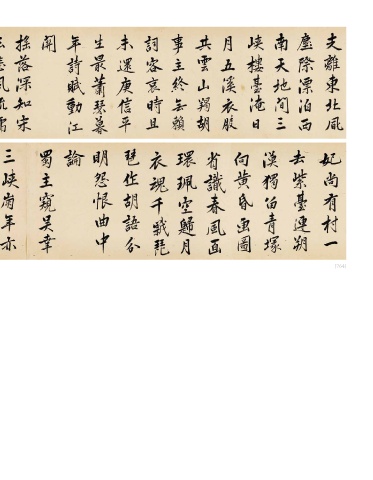 支離東北風
塵際漂泊西
南天地間三
峽樓臺淹日
月五溪衣服
共雲山羯胡
事主終無賴
詞客哀時且
未還庾信平
生最蕭瑟暮
年詩賦動江
關
搖落深知宋
玉悲風流儒
妃尚有村一
去紫臺連朔
漠獨留青塚
向黃昏畫圖
省識春風面
環珮空歸月
夜魂千載琵
琶作胡語分
明怨恨曲中
論
蜀主窺吳幸
三峽崩年亦